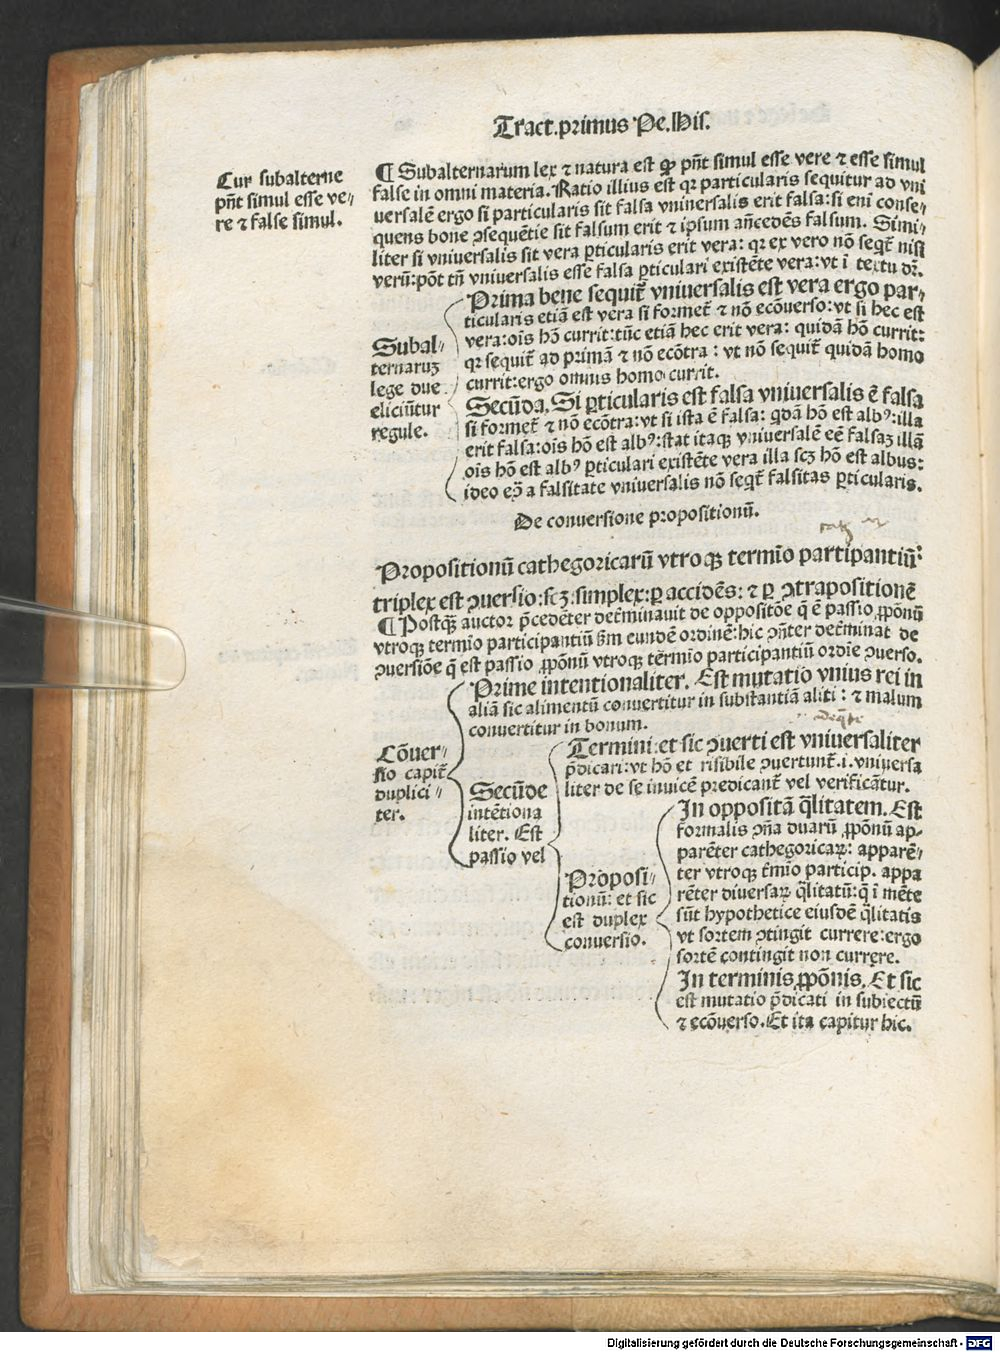 Tract. primus Pe. His.
Cur subalterne
pñt simul esse ve⸗
re ⁊ false simul.
¶ Subalternarum lex ⁊ natura est ꝙ pñt simul esse vere ⁊ esse simul
false in omni materia. Ratio illius est qꝛ particularis sequitur ad vni
uersalē ergo si particularis sit falsa vniuersalis erit falsa: si eni conse⸗
quens bone ꝯsequētie sit falsum erit ⁊ ipsum añcedēs falsum. Simi⸗
liter si vniuersalis sit vera ꝑticularis erit vera: qꝛ ex vero nō seqt̄ nisi
verū: pōt tñ vniuersalis esse falsa ꝑticulari existēte vera: vt ī textu dr̄.
Subal⸗
ternaruꝫ
lege due
eliciūtur
regule.
Prima bene sequit̄ vniuersalis est vera ergo par⸗
ticularis etiā est vera si formet̄ ⁊ nō ecōuerso: vt si hec est
vera: oīs hō currit: tūc etiā hec erit vera: quidā hō currit:
qꝛ sequit̄ ad primā ⁊ nō ecōtra: vt nō sequit̄ quidā homo
currit: ergo omnis homo currit.
Secūda. Si ꝑticularis est falsa vniuersalis ē falsa
si formet̄ ⁊ nō ecōtra: vt si ista ē falsa: qdā hō est albꝰ: illa
erit falsa: oīs hō est albꝰ: stat itaqꝫ vniuersalē eē falsaꝫ illā
oīs hō est albꝰ ꝑticulari existēte vera illa scꝫ hō est albus:
ideo eꝯ̄ a falsitate vniuersalis nō seqt̄ falsitas ꝑticularis.
De conuersione propositionū.
Propositionū cathegoricarū vtroqꝫ termīo partipantiū
triplex est ꝯuersio: scꝫ. simplex: ꝑ accidēs: ⁊ ꝑ ꝯtrapositionē
¶ Postqꝫ̄ auctor p̄cedēter det̄minauit de oppositōe q̄ ē passio ꝓpōnū
vtroqꝫ termīo participantiū s̄m eundē ordinē: hic ꝯñter det̄minat de
ꝯuersiōe q̄ est passio ꝓpōnū vtroqꝫ tērmīo participantiū ordīe ꝯuerso.
Cōuer⸗
sio capit̄
duplici⸗
ter.
Prime intentionaliter. Est mutatio vnius rei in
aliā sic alimentū conuertitur in substantiā aliti: ⁊ malum
conuertitur in bonum.
Secūde
intētiona
liter. Est
passio vel
Termini: et sic ꝯuerti est vniuersaliter
p̄dicari: vt hō et risibile ꝯuertunt̄. i. vniuersa
liter de se inuicē predicant̄ vel verificātur.
Proposi⸗
tionū: et sic
est duplex
conuersio.
In oppositā q̄litatem. Est
formalis ꝯña duarū ꝓpōnū ap⸗
parēter cathegoricaꝝ: apparē⸗
ter vtroqꝫ t̄mīo particip. appa
rēter diuersaꝝ q̄litatū: q̄ ī mēte
sūt hypothetice eiusdē q̄litatis
vt sortem ꝯtingit currere: ergo
sortē contingit non currere.
In terminis ꝓpōnis. Et sic
est mutatio p̄dicati in subiectū
⁊ ecōuerso. Et ita capitur hic.
Digitalisierung gefördert durch die Deutsche Forschungsgemeinschaft - DFG